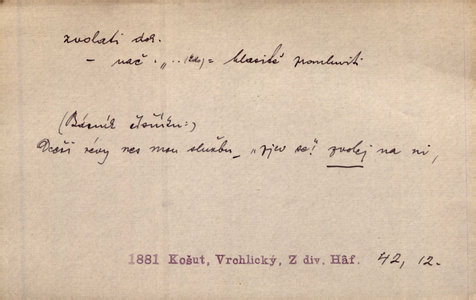 zvolati dok.
– nač · „... (čeho) = hlasitě promluviti
(Básník číšníku:)
Dceři révy nes mou službu – „zjev se!“ zvolej na ni,
1881 Košut, Vrchlický, Z div. Háf. 42, 12.